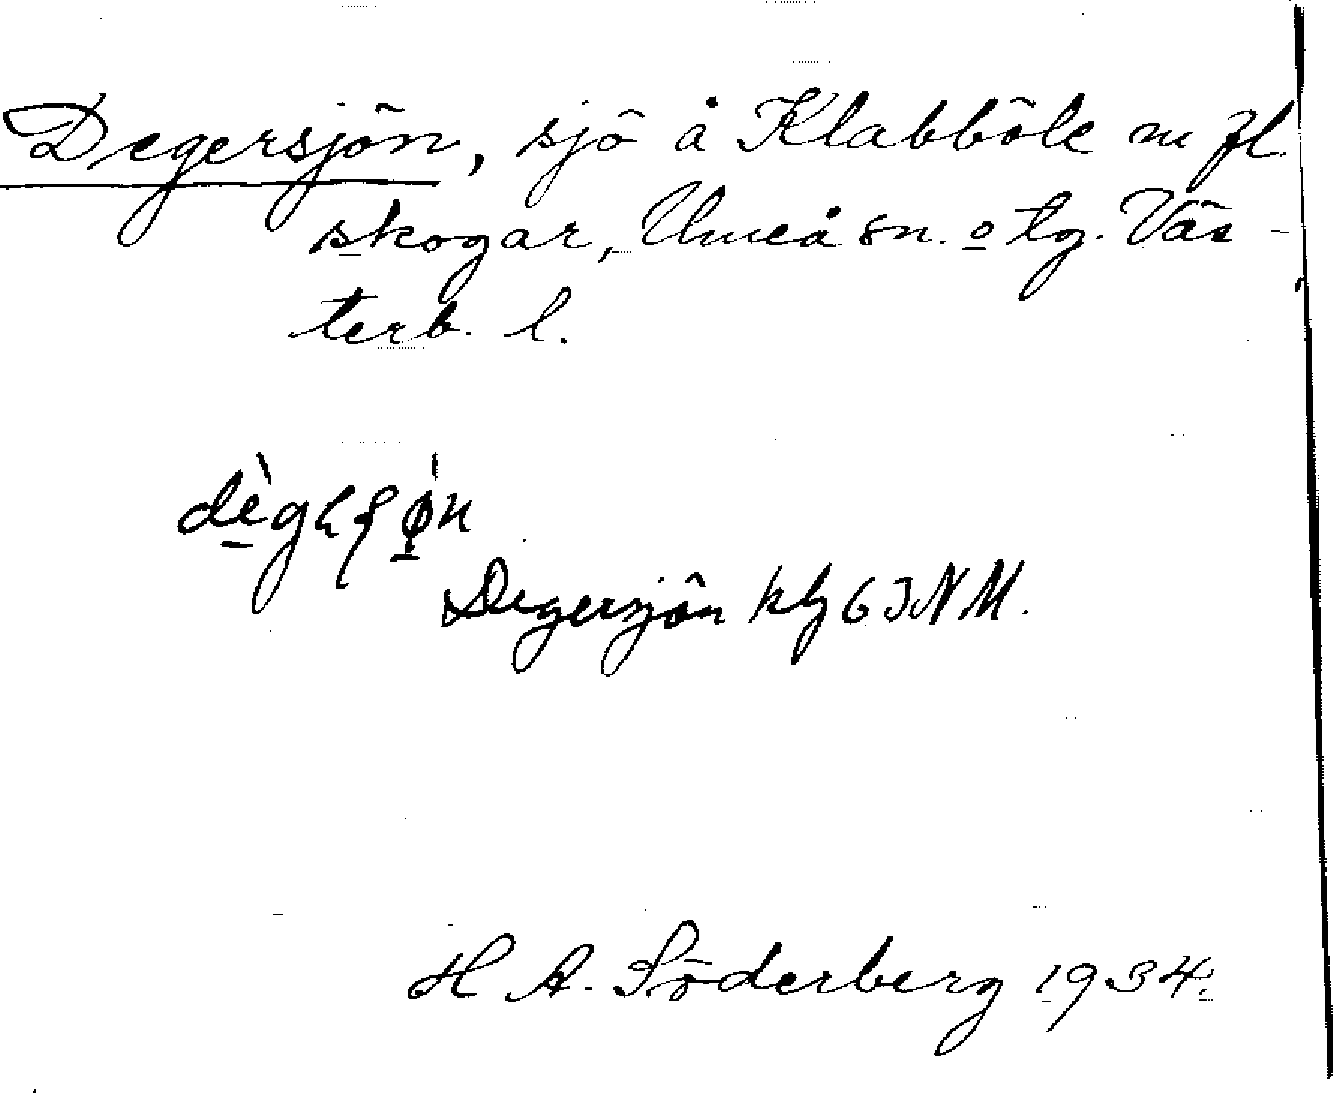 Degersjön, sjö å Klabböle m fl.
skogar, Umeå sn. o tg. Väs-
terb. l.
Degersjön kbl 63 NM.
H A. Söderberg 1934.